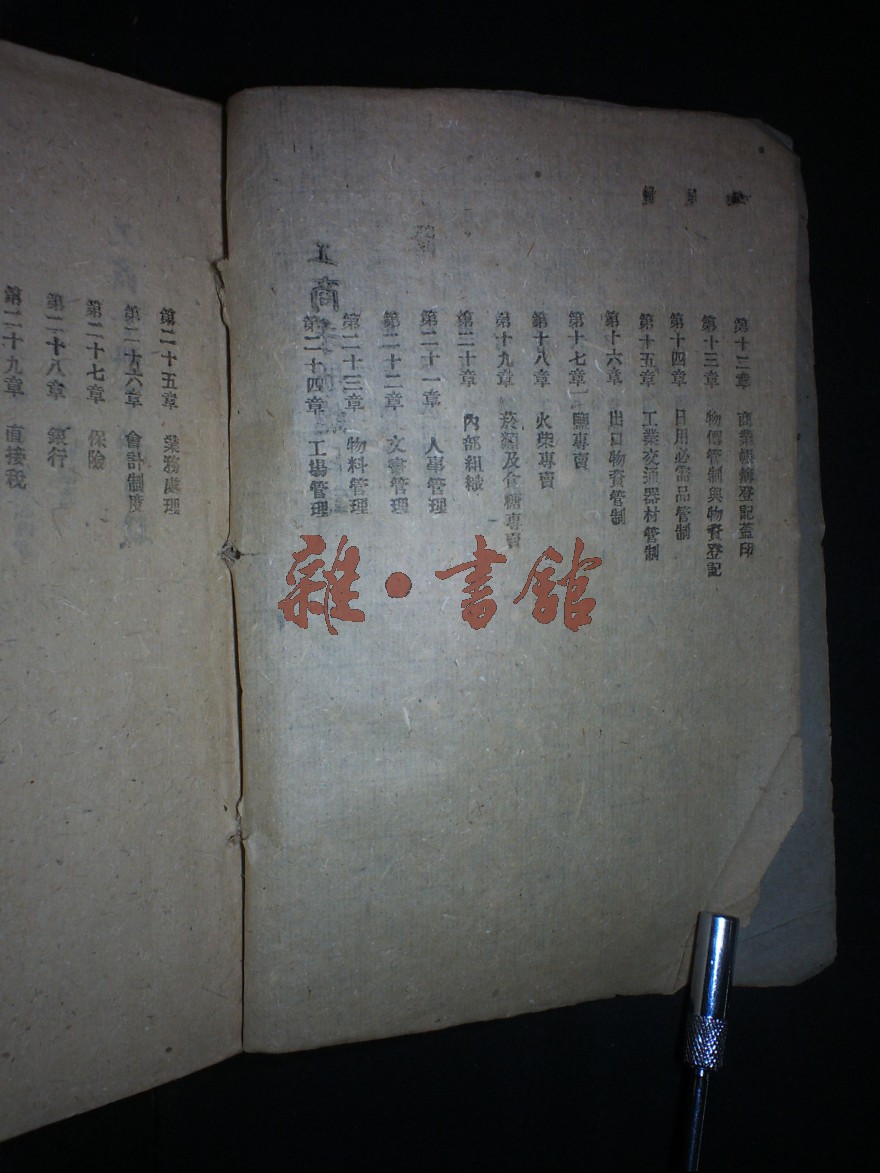 第十二章　商業帳簿登記蓋印
第十三章　物價管制與物資登記
第十四章　日用必需品管制
第十五章　工業交通器材管制
第十六章　出口物資管制
第十七章　鹽專賣
第十八章　火柴專賣
第十九章　菸類及食糖專賣
第二十章　內部組織
第二十一章　人事管理
第二十二章　文書管理
第二十三章　物料管理
第二十四章　工場管理
第二十五章　業務處理
第二十六章　會計制度
第二十七章　保險
第二十八章　銀行
第二十九章　直接稅
工商
雜·書館